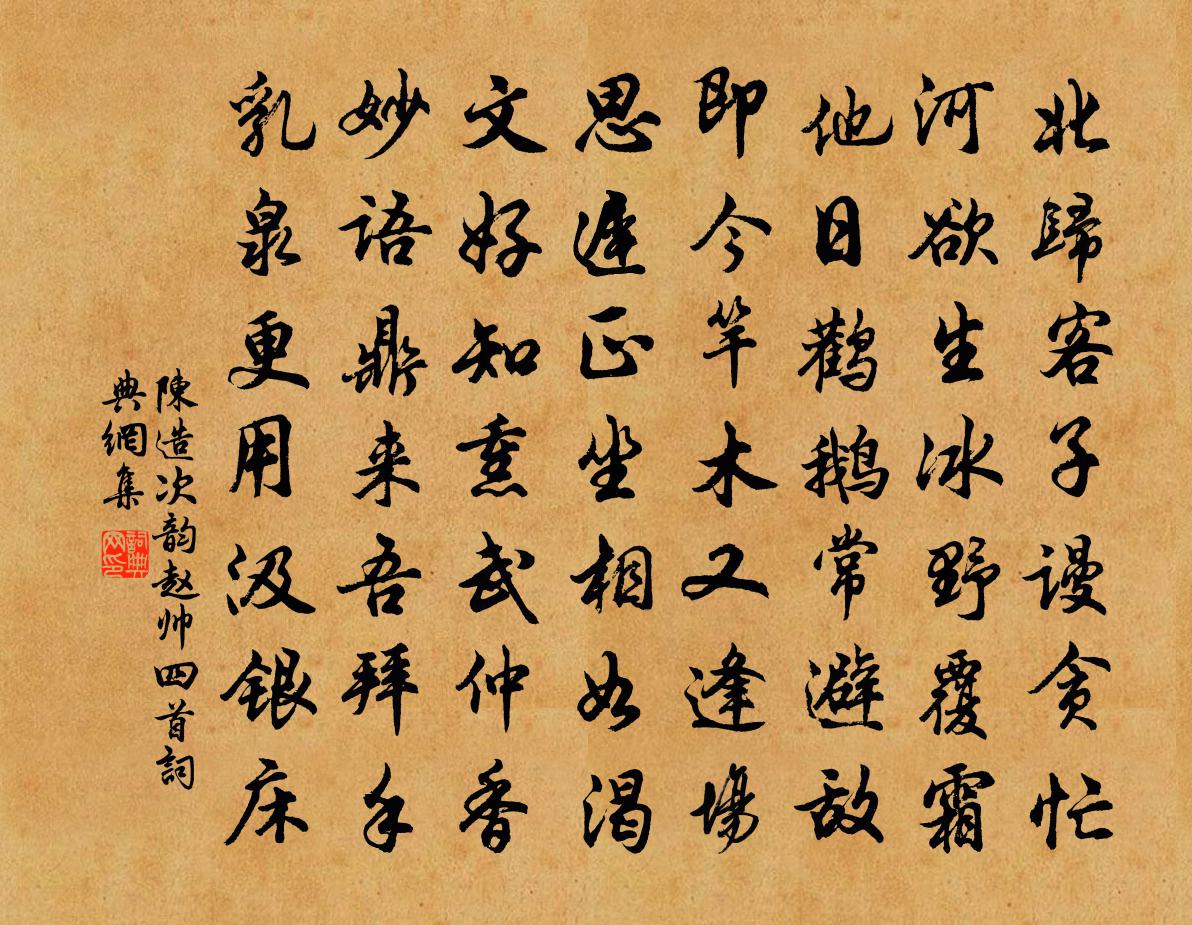 北歸客子謾貪忙
河欲生冰野覆霜
他日鹳鹅常避敌
即今竿木又逢場
思遲正坐相如渴
文好知熏武仲香
妙語鼎来吾拜手
乳泉更用汲銀床
陳造次韵赵帅四首詞
典網集
詞典
网印